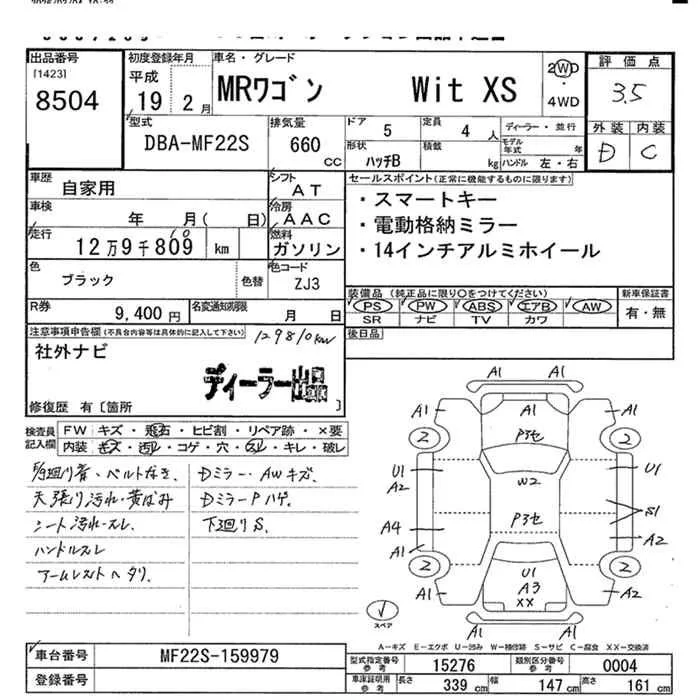 出品番号
[1423]
8504
初度登録年月
平成
19年 2月
車名・グレード
MRワゴン Wit XS
2WD
・
4WD
評価点
3.5
外装 内装
D C
型式
DBA-MF22S
排気量
660
CC
ドア 5
定員 4 人
ディーラー・並行
形状 ハッチB
積載 kg
モデル年式 年
ハンドル 左・右
車歴
自家用
シフト
AT
セールスポイント(正常に機能するものに限ります)
・スマートキー
・電動格納ミラー
・14インチアルミホイール
車検
年 月( 日)
冷房
AAC
走行
12万9千809 km
10
燃料
ガソリン
色
ブラック
色替
色コード
ZJ3
R券
9,400円
名変通知期限
月 日
装備品(純正品に限り○をつけてください)
PS PW ABS エアB AW
SR ナビ TV カワ
新車保証書
有・無
注意事項申告欄(不具合内容等は具体的に記入して下さい)
129810km
社外ナビ
ディーラー出品
修復歴 有〔箇所 〕
後日品
検査員
記入欄
FW キズ・飛石・ヒビ割・リペア跡・×要
内装 キズ・汚レ・コゲ・穴・スレ・キレ・破レ
下廻り音、ベルトなき、
天張り汚れ・黄ばみ
シート汚れ・スレ
ハンドルスレ
アームレストヘタリ、
Dミラー・AWキズ、
DミラーPハゲ、
下廻りS、
A1
A1 A1 A1
2 P3セ 2
U1 U1
A2 W2
P3セ S1
A4 A2
A1
2 U1 2
A3
XX
A1 A1
A1
スペア
A-キズ E-エクボ U-凹み W-補修跡 S-サビ C-腐食 XX-交換済
車台番号
MF22S-159979
登録番号
型式指定番号
参考
15276
類別区分番号
参考
0004
車庫証明用
参考
長さ 339 cm
幅 147 cm
高さ 161 cm